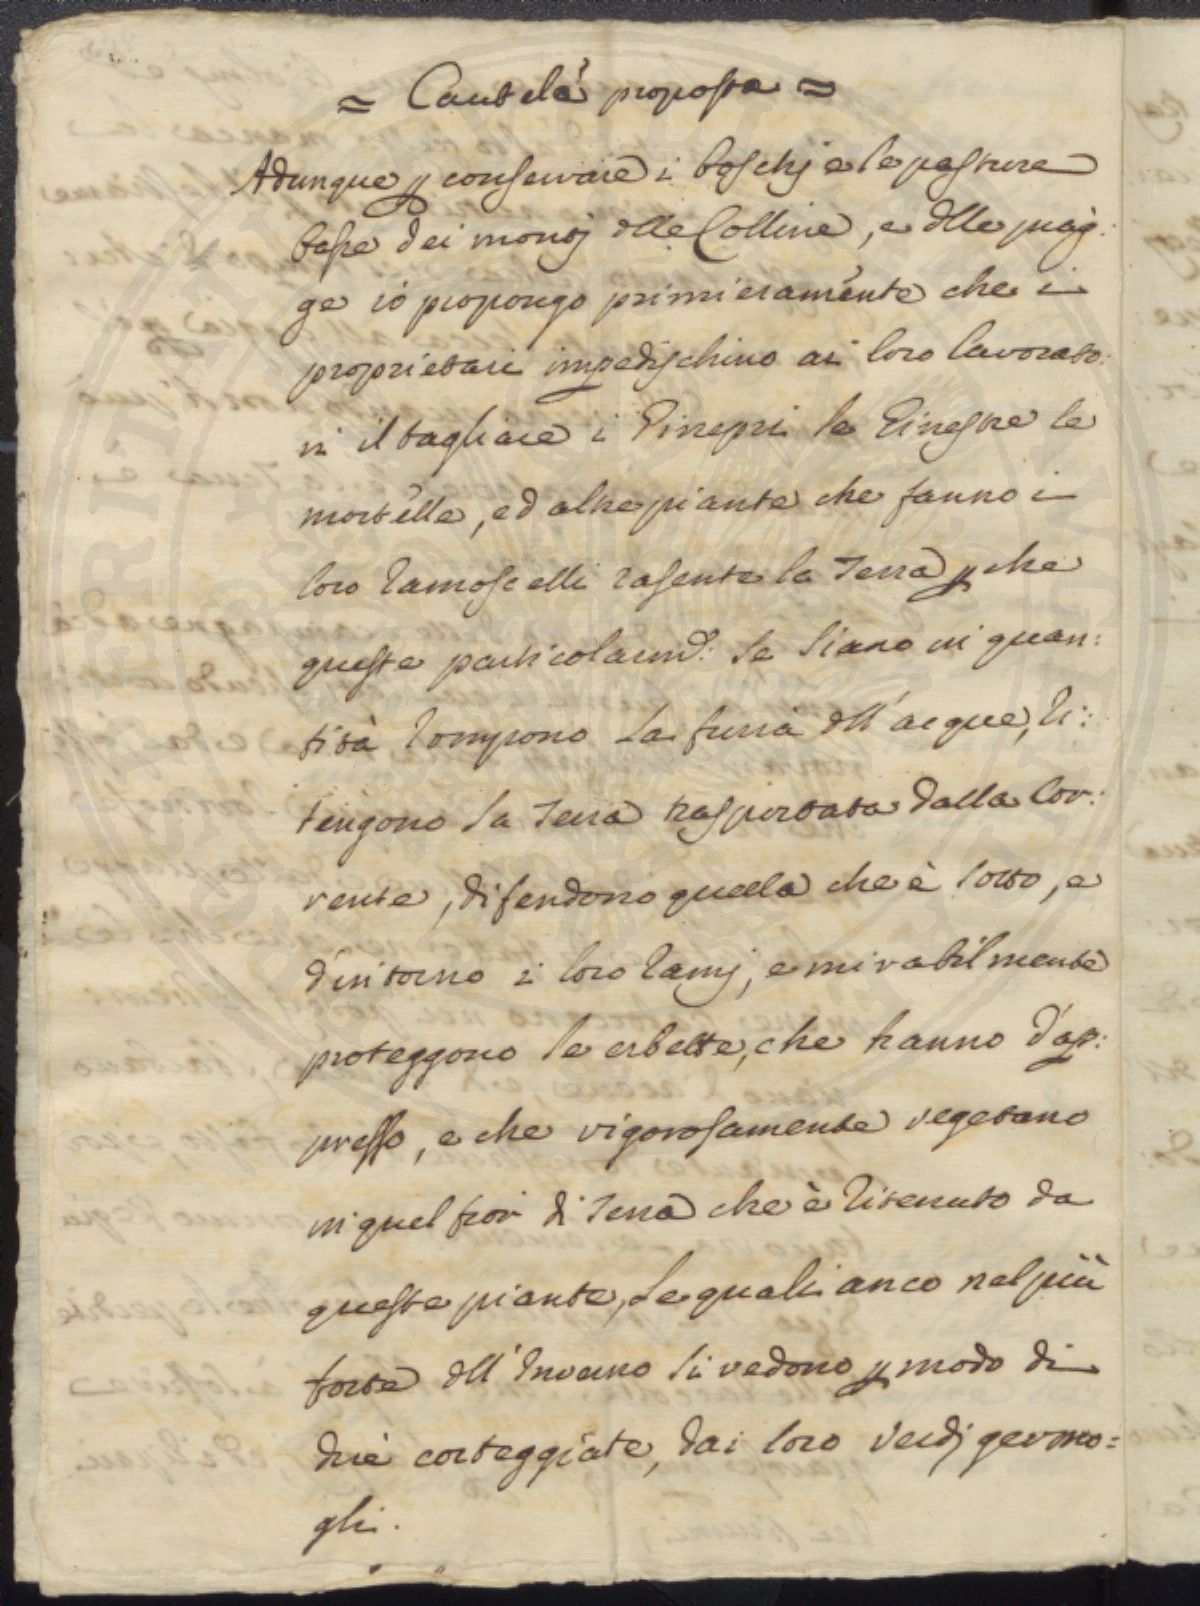 = Cautela proposta =
Adunque p conservare i boschj e le pasture
basse dei montj dlle Colline, e dlle piag:
ge io propongo primieramente che i
proprietari impedischino ai loro lavorato:
ri il tagliare i Ginepri le Ginestre le
mortelle, ed altre piante che fanno i
loro ramoscelli rasente la Terra p che
queste particolarmd: se siano in quan:
tità rompono la furia dll'acque, ri:
tengono la Terra trasportata dalla Cor:
rente, difendono quella che è sotto, e
d'intorno i loro ramj, e mirabilmente
proteggono le erbette, che hanno d'ap:
presso, e che vigorosamente vegetano
in quel fior di Terra che è ritenuto da
queste piante, le quali anco nel più
forte dll'Inverno si vedono p modo di
dire corteggiate, dai loro verdj germo=
gli.